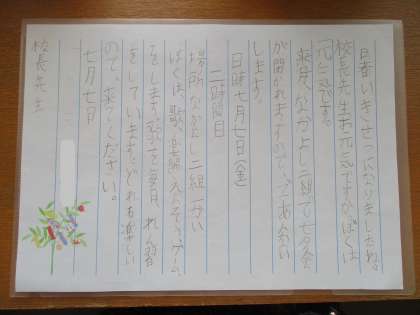 暑いきせつになりましたね。
校長先生お元気ですか。ぼくは
元気です。
二組で七夕会
が開かれますので、ごあんない
します。
日時七月七日(金)
二時間目
場所なかよし二組
ぼくは、歌、楽器えんそう、ゲーム
をします。歌を毎日、れん習
をしています。とても楽しい
ので、来てください。
七月七日
校長先生